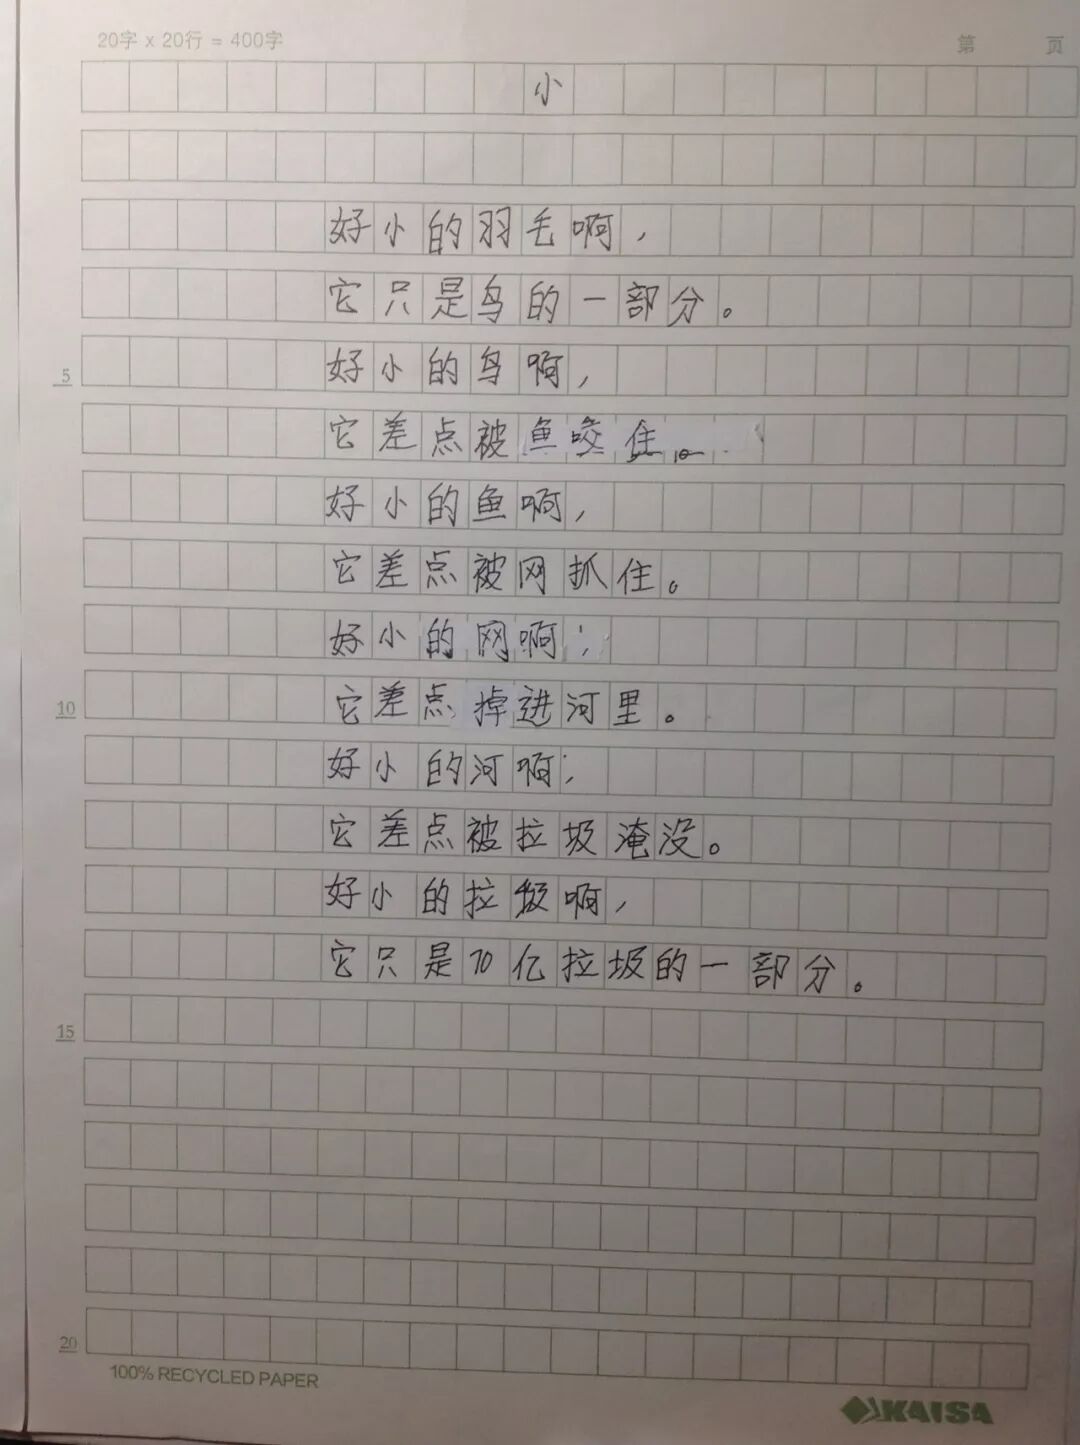 20字 x 20行 = 400字
第 页
小
好小的羽毛啊，
它只是鸟的一部分。
5
好小的鸟啊，
它差点被鱼咬住。
好小的鱼啊，
它差点被网抓住。
好小的网啊，
10
它差点掉进河里。
好小的河啊，
它差点被垃圾淹没。
好小的垃圾啊，
它只是70亿垃圾的一部分。
15
20
100% RECYCLED PAPER
KAISA